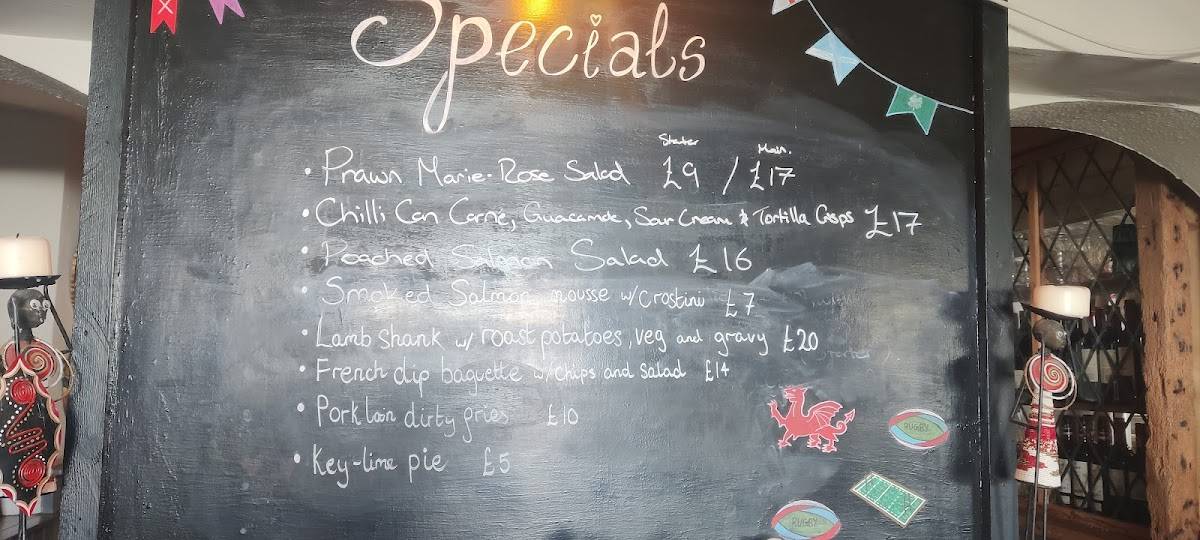 Specials
Starter Main.
• Prawn Marie-Rose Salad £9 / £17
• Chilli Con Carné, Guacamole, Sour Cream & Tortilla Crisps £17
• Poached Salmon Salad £16
• Smoked Salmon mousse w/ Crostini £7
• Lamb Shank w/ roast potatoes, veg and gravy £20
• French dip baguette w/ chips and salad £14
• Pork loin dirty fries £10
• Key-lime pie £5
RUGBY
RUGBY